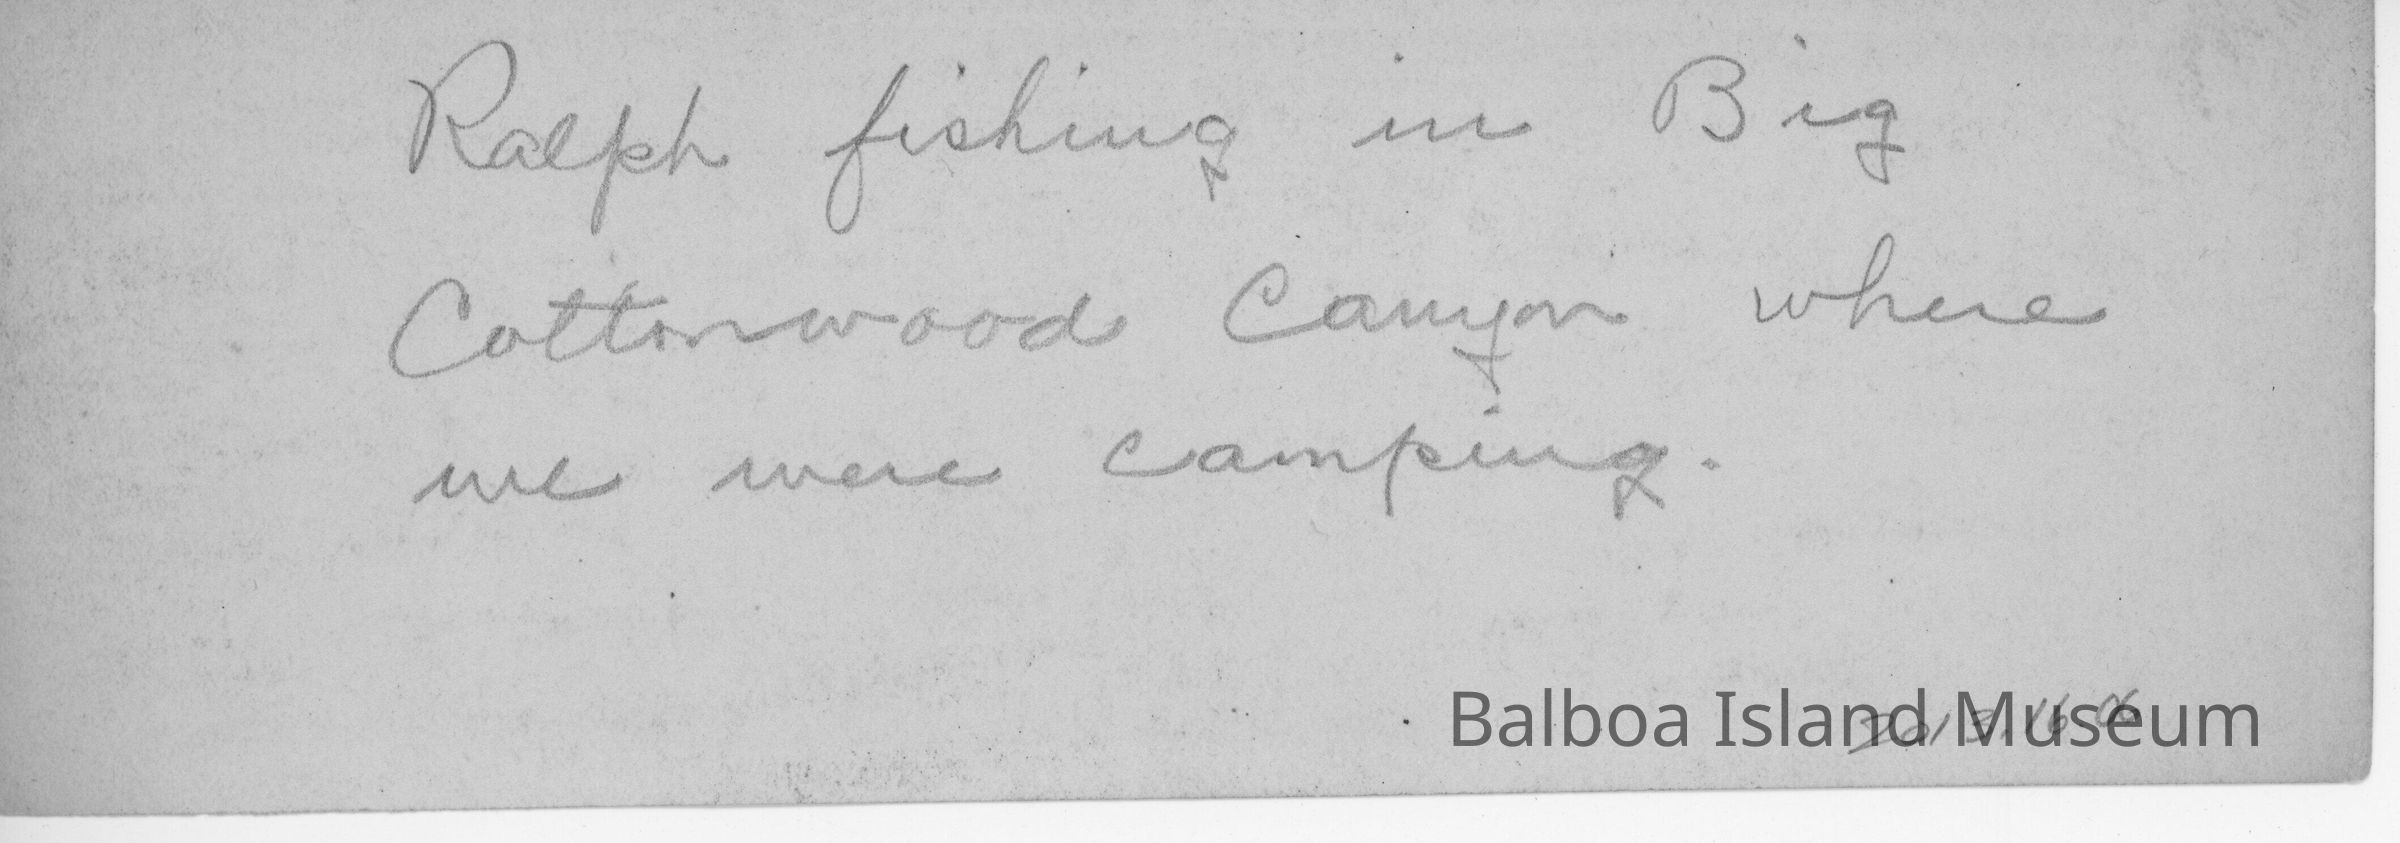 Ralph fishing in Big
Cottonwood Canyon where
we were camping.
Balboa Island Museum
2013.16.06